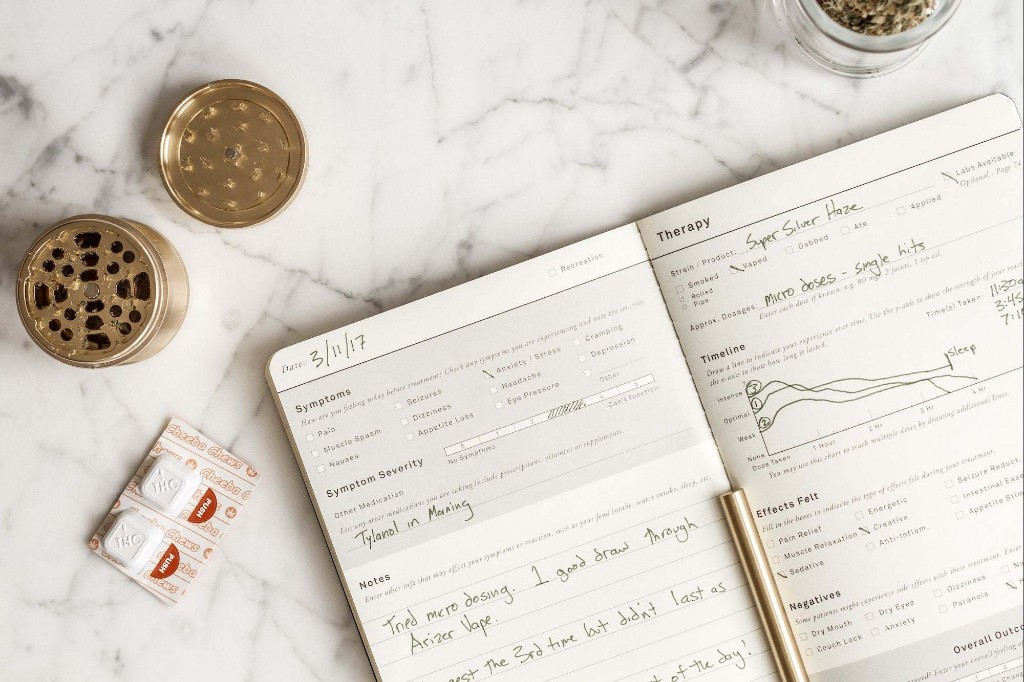 Recreation
Date: 3/11/17
Symptoms
How are you feeling today before treatment? Check any symptoms you are experiencing and note the severity.
Pain
Muscle Spasm
Nausea
Seizures
Dizziness
Appetite Loss
Anxiety / Stress
Headache
Eye Pressure
Cramping
Depression
Other
Symptom Severity
No Symptoms
Can't function
Other Medication
List any other medications you are taking include prescriptions, vitamins or supplements.
Tylanol in Morning
Notes
Enter other info that may affect your symptoms or reaction, such as your food intake, water intake, sleep, etc.
Tried micro dosing. 1 good draw through
Arizer Vape.
est the 3rd time but didn't last as
of the day!
Therapy
Labs Available
Optional - Page 74
Strain / Product: Super Silver Haze
Smoked
Rolled
Pipe
Vaped
Dabbed
Ate
Applied
Approx. Dosages: micro doses - single hits
Enter each dose if known, e.g. 80 mg, 2 joints, 1 op oil.
Time(s) Taken: 11:30
3:45
7:1
Timeline
Draw a line to indicate your experience over time. Use the y-axis to show the strength of your
the x-axis to show how long is lasted.
Intense
Optimal
Weak
None
3
1
2
Sleep
Dose Taken
1 Hour
2 Hr
3 Hr
4 Hr
You may use this chart to track multiple doses by drawing additional lines.
Effects Felt
Fill in the boxes to indicate the type of effects felt during your treatment.
Pain Relief
Muscle Relaxation
Sedative
Energetic
Creative
Anti-Inflam.
Seizure Reduct.
Intestinal Ease
Appetite Stim
Negatives
Some patients might experience side effects with these treatment.
Dry Mouth
Couch Lock
Dry Eyes
Anxiety
Dizziness
Paranoia
Overall Outco
Enter your overall feeling
Cheeba Chews
THC
PUSH
THC
PUSH